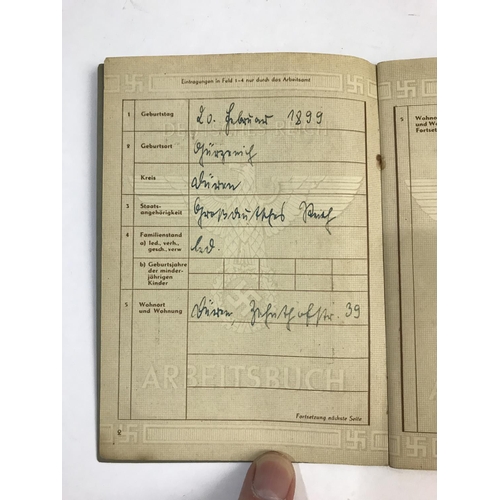 Eintragungen in Feld 1—4 nur durch das Arbeitsamt
1 Geburtstag 20. Februar 1899
2 Geburtsort Gürzenich
Kreis Düren
3 Staats-
angehörigkeit Großdeutsches Reich
4 Familienstand
a) led., verh.,
gesch., verw led.
b) Geburtsjahre
der minder-
jährigen
Kinder
5 Wohnort
und Wohnung Düren Zehnthofstr. 39
ARBEITSBUCH
Fortsetzung nächste Seite
2
5 Wohnort
und Wo
Fortset